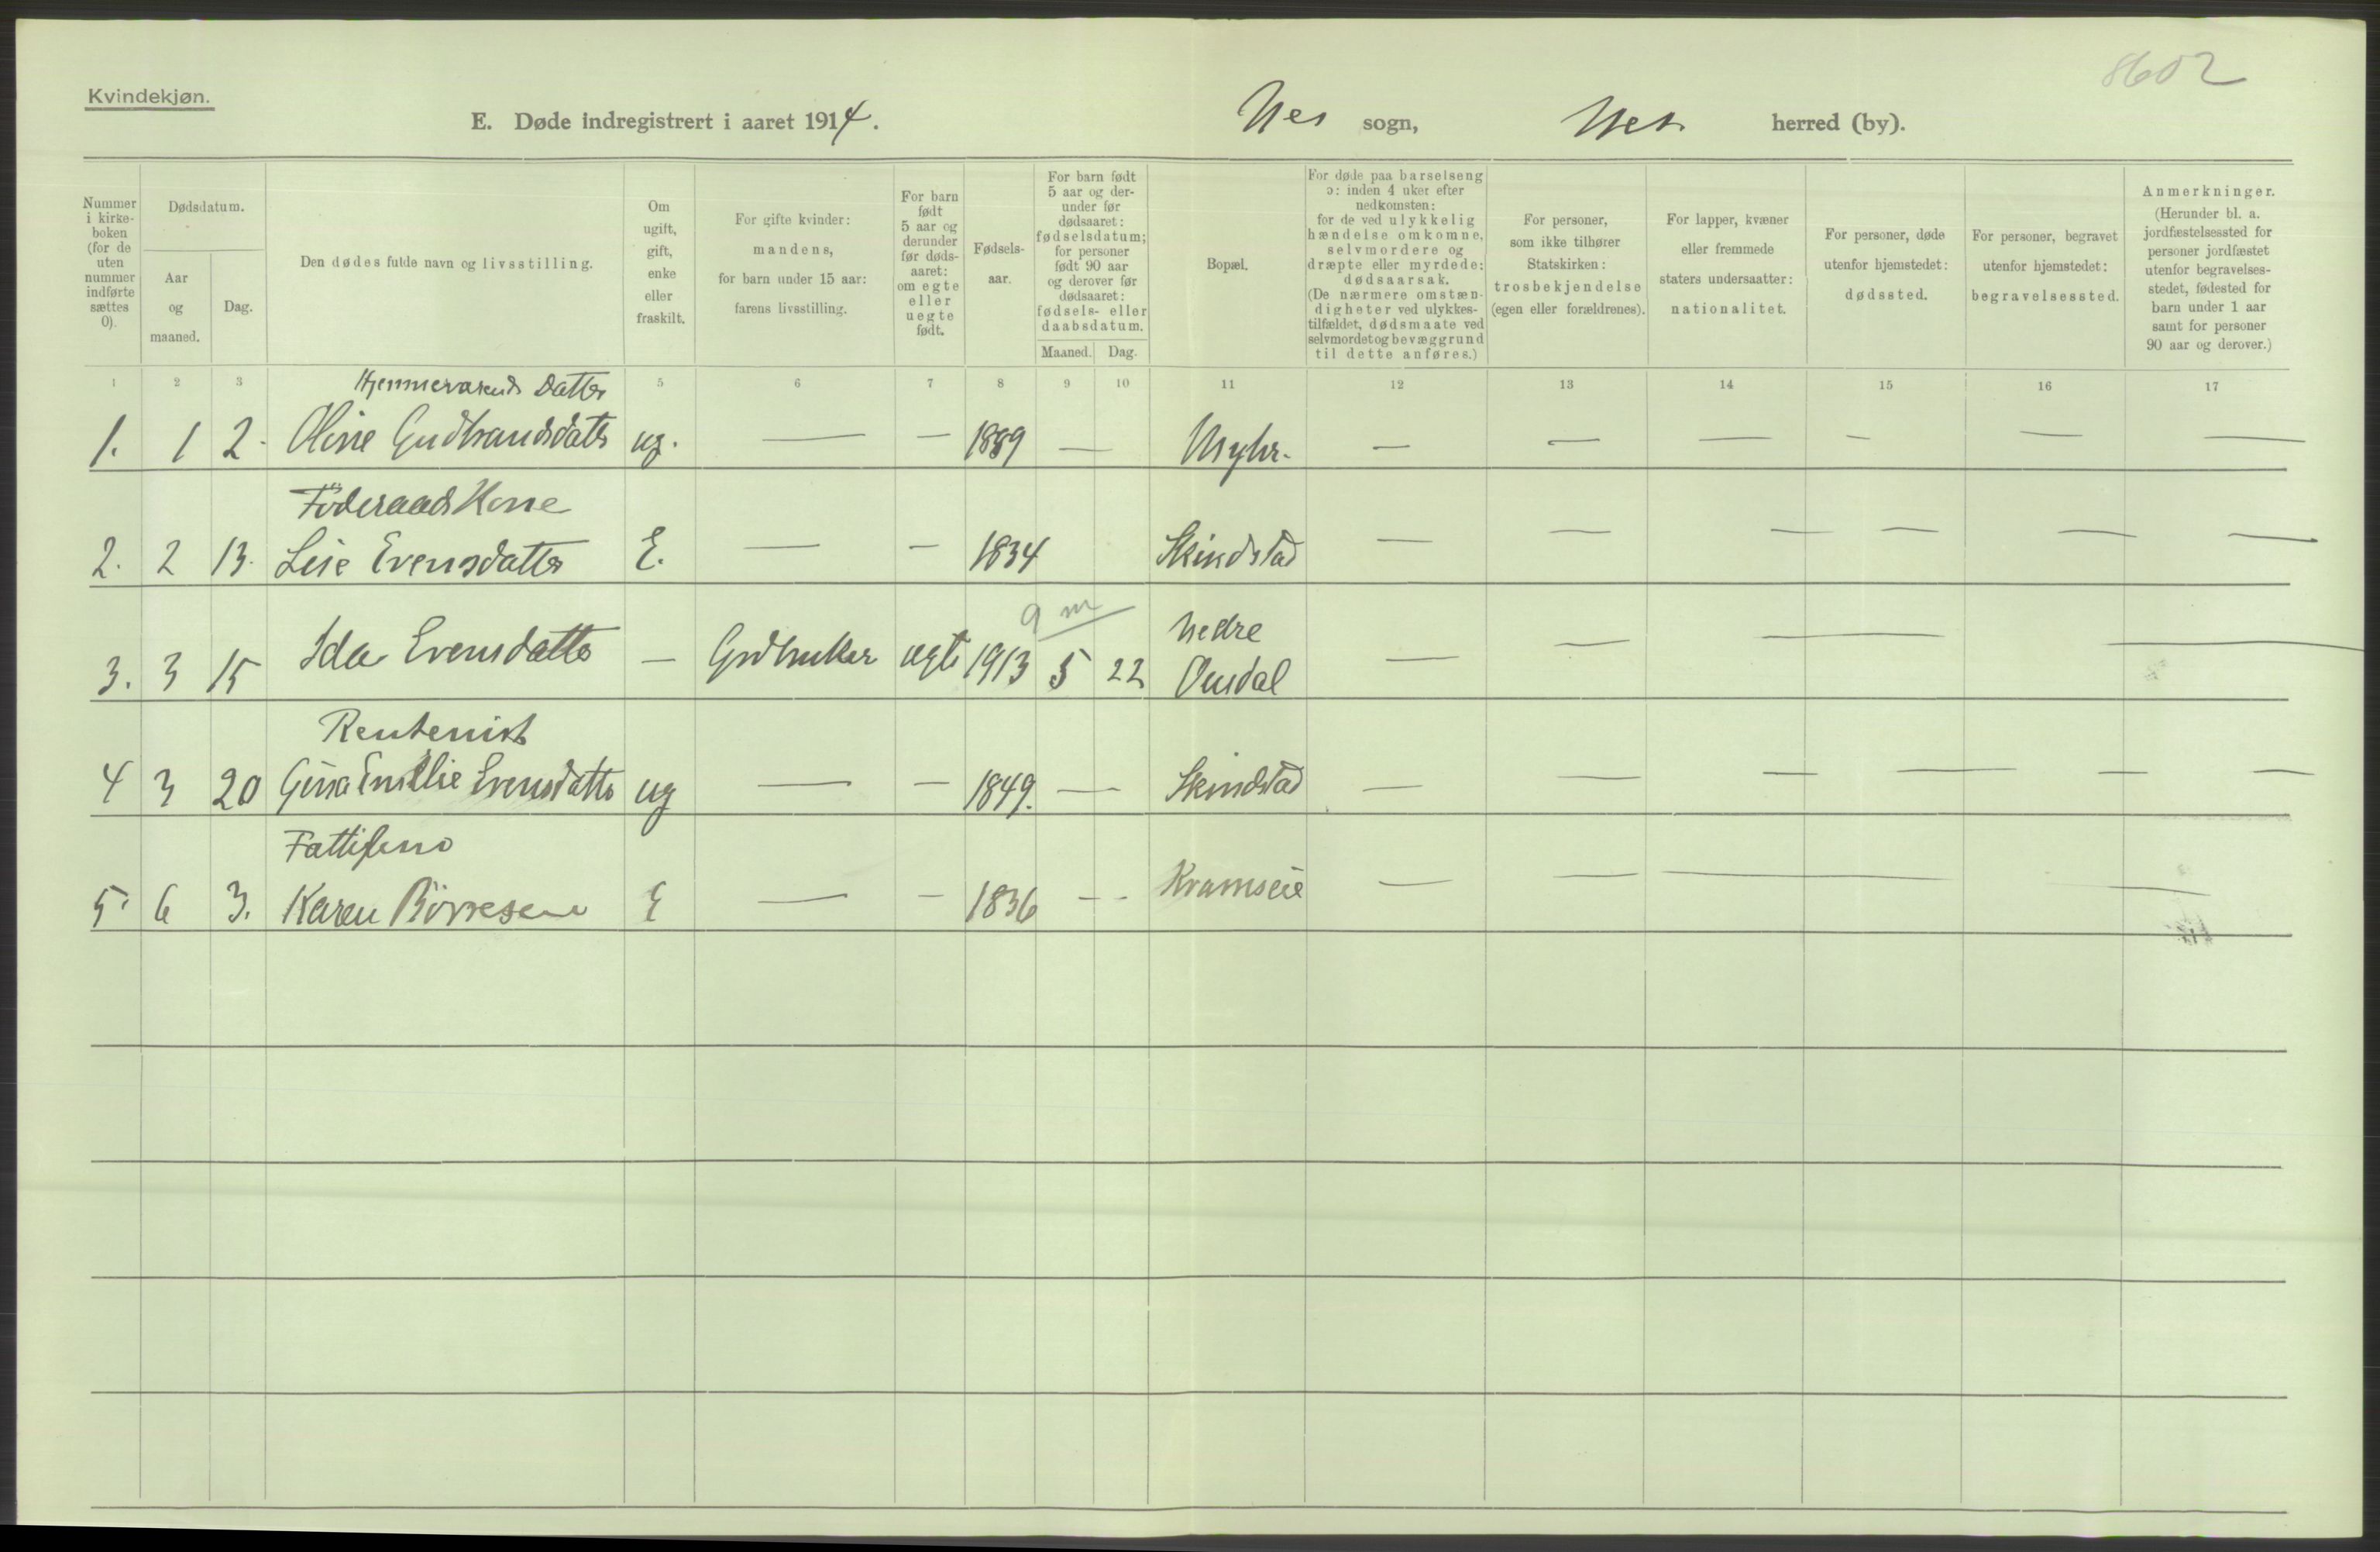 8602
Kvindekjøn.
E. Døde indregistrert i aaret 1914.
Nes sogn, Nes herred (by).
Nummer i kirkeboken (for de uten nummer indførte sættes 0).
Dødsdatum.
Aar og maaned.
Dag.
Den dødes fulde navn og livsstilling.
Om ugift, gift, enke eller fraskilt.
For gifte kvinder: mandens, for barn under 15 aar: farens livsstilling.
For barn født 5 aar og derunder før dødsaaret: om egte eller uegte født.
Fødselsaar.
For barn født 5 aar og derunder før dødsaaret: fødselsdatum; for personer født 90 aar og derover før dødsaaret: fødsels- eller daabsdatum.
Maaned. Dag.
Bopæl.
For døde paa barselseng ɔ: inden 4 uker efter nedkomsten: for de ved ulykkelig hændelse omkomne, selvmordere og dræpte eller myrdede: dødsaarsak. (De nærmere omstændigheter ved ulykkestilfældet, dødsmaate ved selvmordet og bevæggrund til dette anføres.)
For personer, som ikke tilhører Statskirken: trosbekjendelse (egen eller forældrenes).
For lapper, kvæner eller fremmede staters undersaatter: nationalitet.
For personer, døde utenfor hjemstedet: dødssted.
For personer, begravet utenfor hjemstedet: begravelsessted.
Anmerkninger. (Herunder bl. a. jordfæstelsessted for personer jordfæstet utenfor begravelsesstedet, fødested for barn under 1 aar samt for personer 90 aar og derover.)
1 2 3 5 6 7 8 9 10 11 12 13 14 15 16 17
Hjemmeværends Datter
1. 1 2. Oline Gudbrandsdatter ug. — — 1889 — Myhr. — — — — — —
Föderaads Kone
2. 2 13. Lise Evensdatter E. — — 1834 Skindstad — — — — — —
9 m
Nedre
3. 3 15 Ida Evensdatter — Grdbruker ægte 1913 5 22 — — — —
Rentenist
4 3 20 Gina Emilie Evensdatter ug — — 1849. — Skindstad — — — — — —
5. 6 3. Karen Börresen E — — 1836 - - Kramseie — — — —